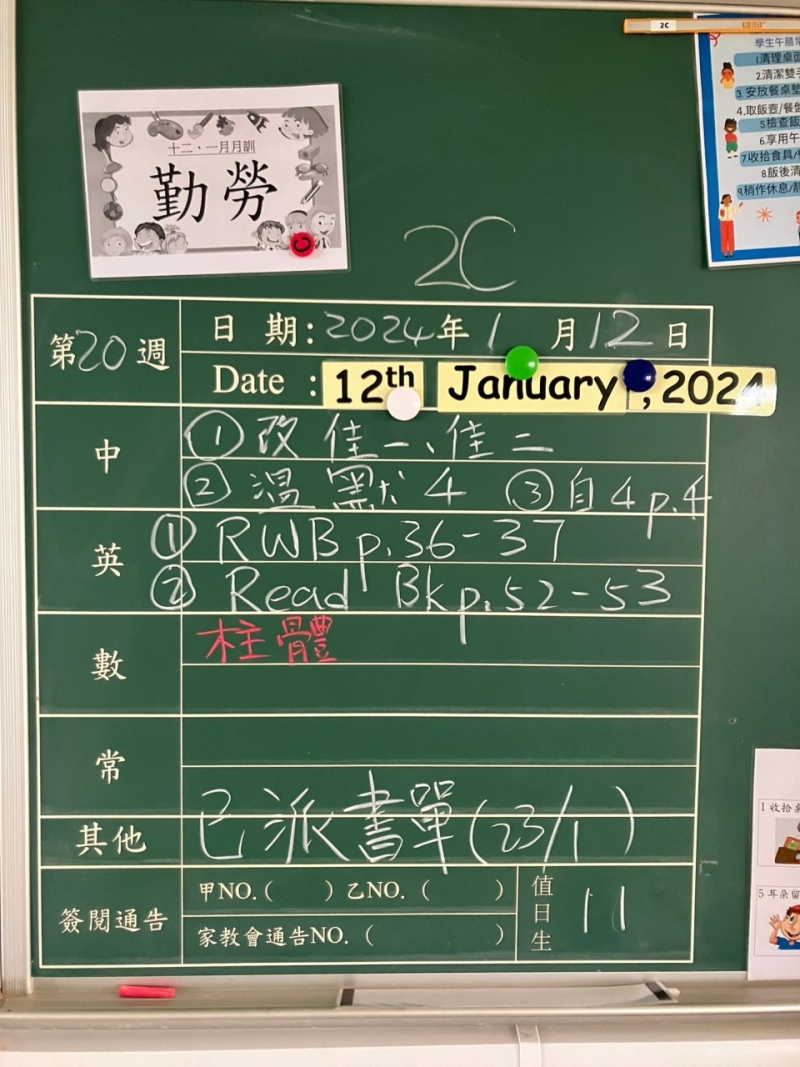 2C
學生午膳常
1清理桌面
2.清潔雙手
3.安放餐桌墊
4.取飯壺/餐盤
5檢查飯
6.享用午
7.收拾食具/
8.飯後清
9.稍作休息/靜
十二、一月月訓
勤勞
2C
第20週
日期:2024年1月12日
Date : 12th January , 2024
中
①改 佳一、佳二
②溫 默4 ③自4 p.4
英
①RWB p.36-37
②Read Bk p.52-53
數
柱體
常
其他
已派書單(23/1)
簽閱通告
甲NO.( ) 乙NO. ( )
家教會通告NO. ( )
值日生
11
1 收拾桌
5 耳朵留